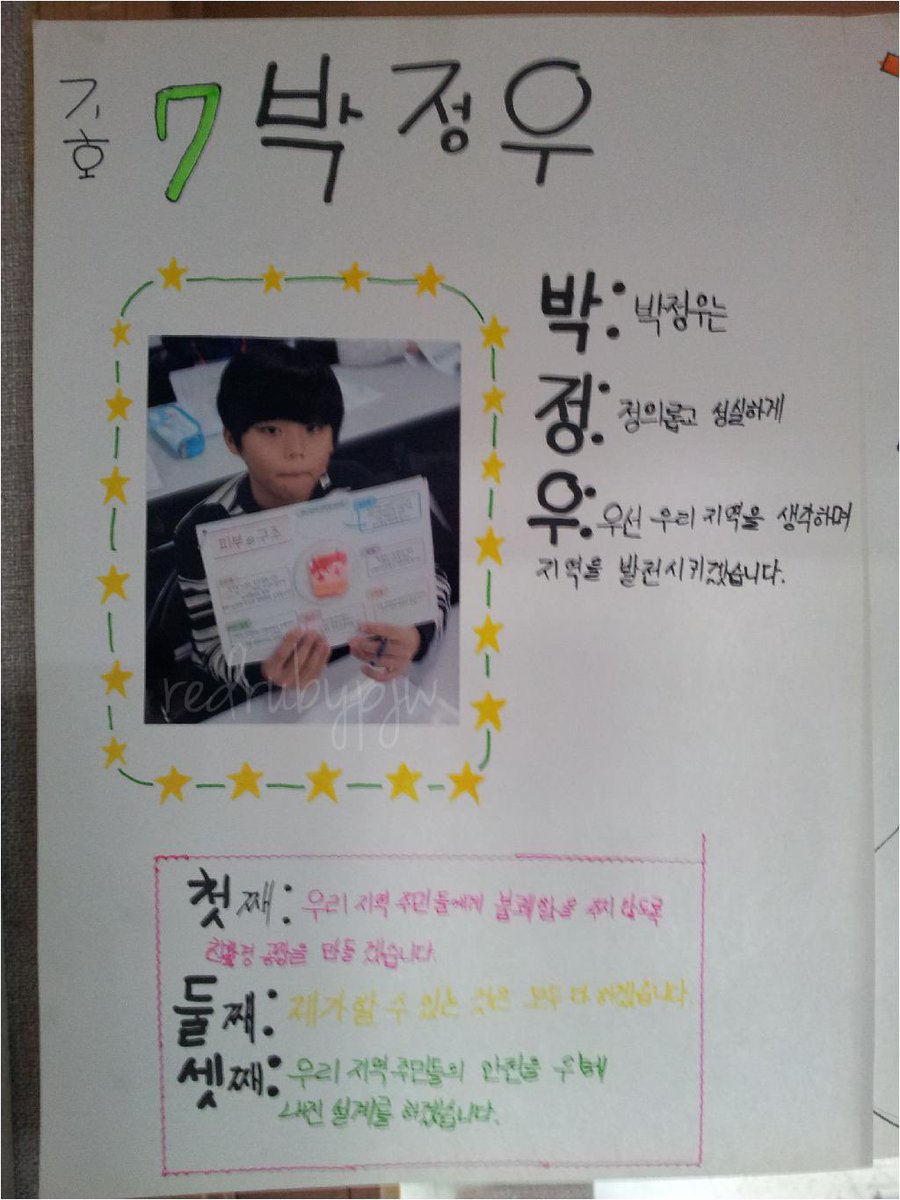 기호 7 박정우
박: 박정우는
정: 정의롭고 성실하게
우: 우선 우리 지역을 생각하며
지역을 발전시키겠습니다.
redrubypjw
첫째: 우리 지역 주민들에게 불쾌함을 주지 않도록
친환경 공장을 만들 겠습니다.
둘째: 제가할 수 있는 것은 모두 다 하겠습니다.
셋째: 우리 지역 주민들의 안전을 위해
내진 설계를 하겠습니다.